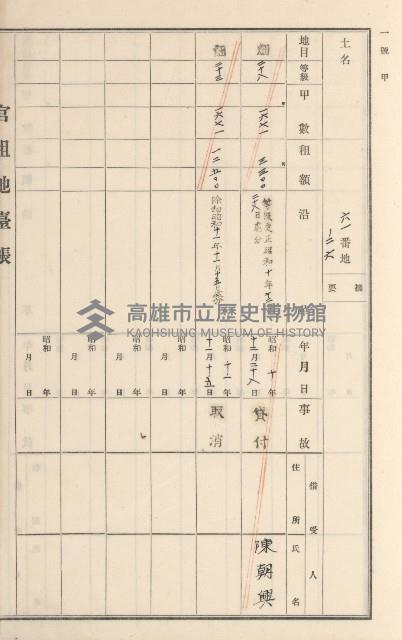 一號甲
土名
六一番地
ノ二六
摘要
地目
等級
甲數
租額
沿革
年月日
事故
借受人
住所
氏名
畑
二十八
一六六一
三三〇〇
等級更正昭和十年十二月
二十八日處分
昭和十年
十二月二十八日
貸付
陳朝興
畑
二十三
一六六一
一二五〇〇
除租昭和十一年十一月十五日處分
昭和十一年
十一月十五日
取消
昭和年
月日
昭和年
月日
昭和年
月日
昭和年
月日
官租地臺帳
高雄市立歷史博物館
KAOHSIUNG MUSEUM OF HISTORY